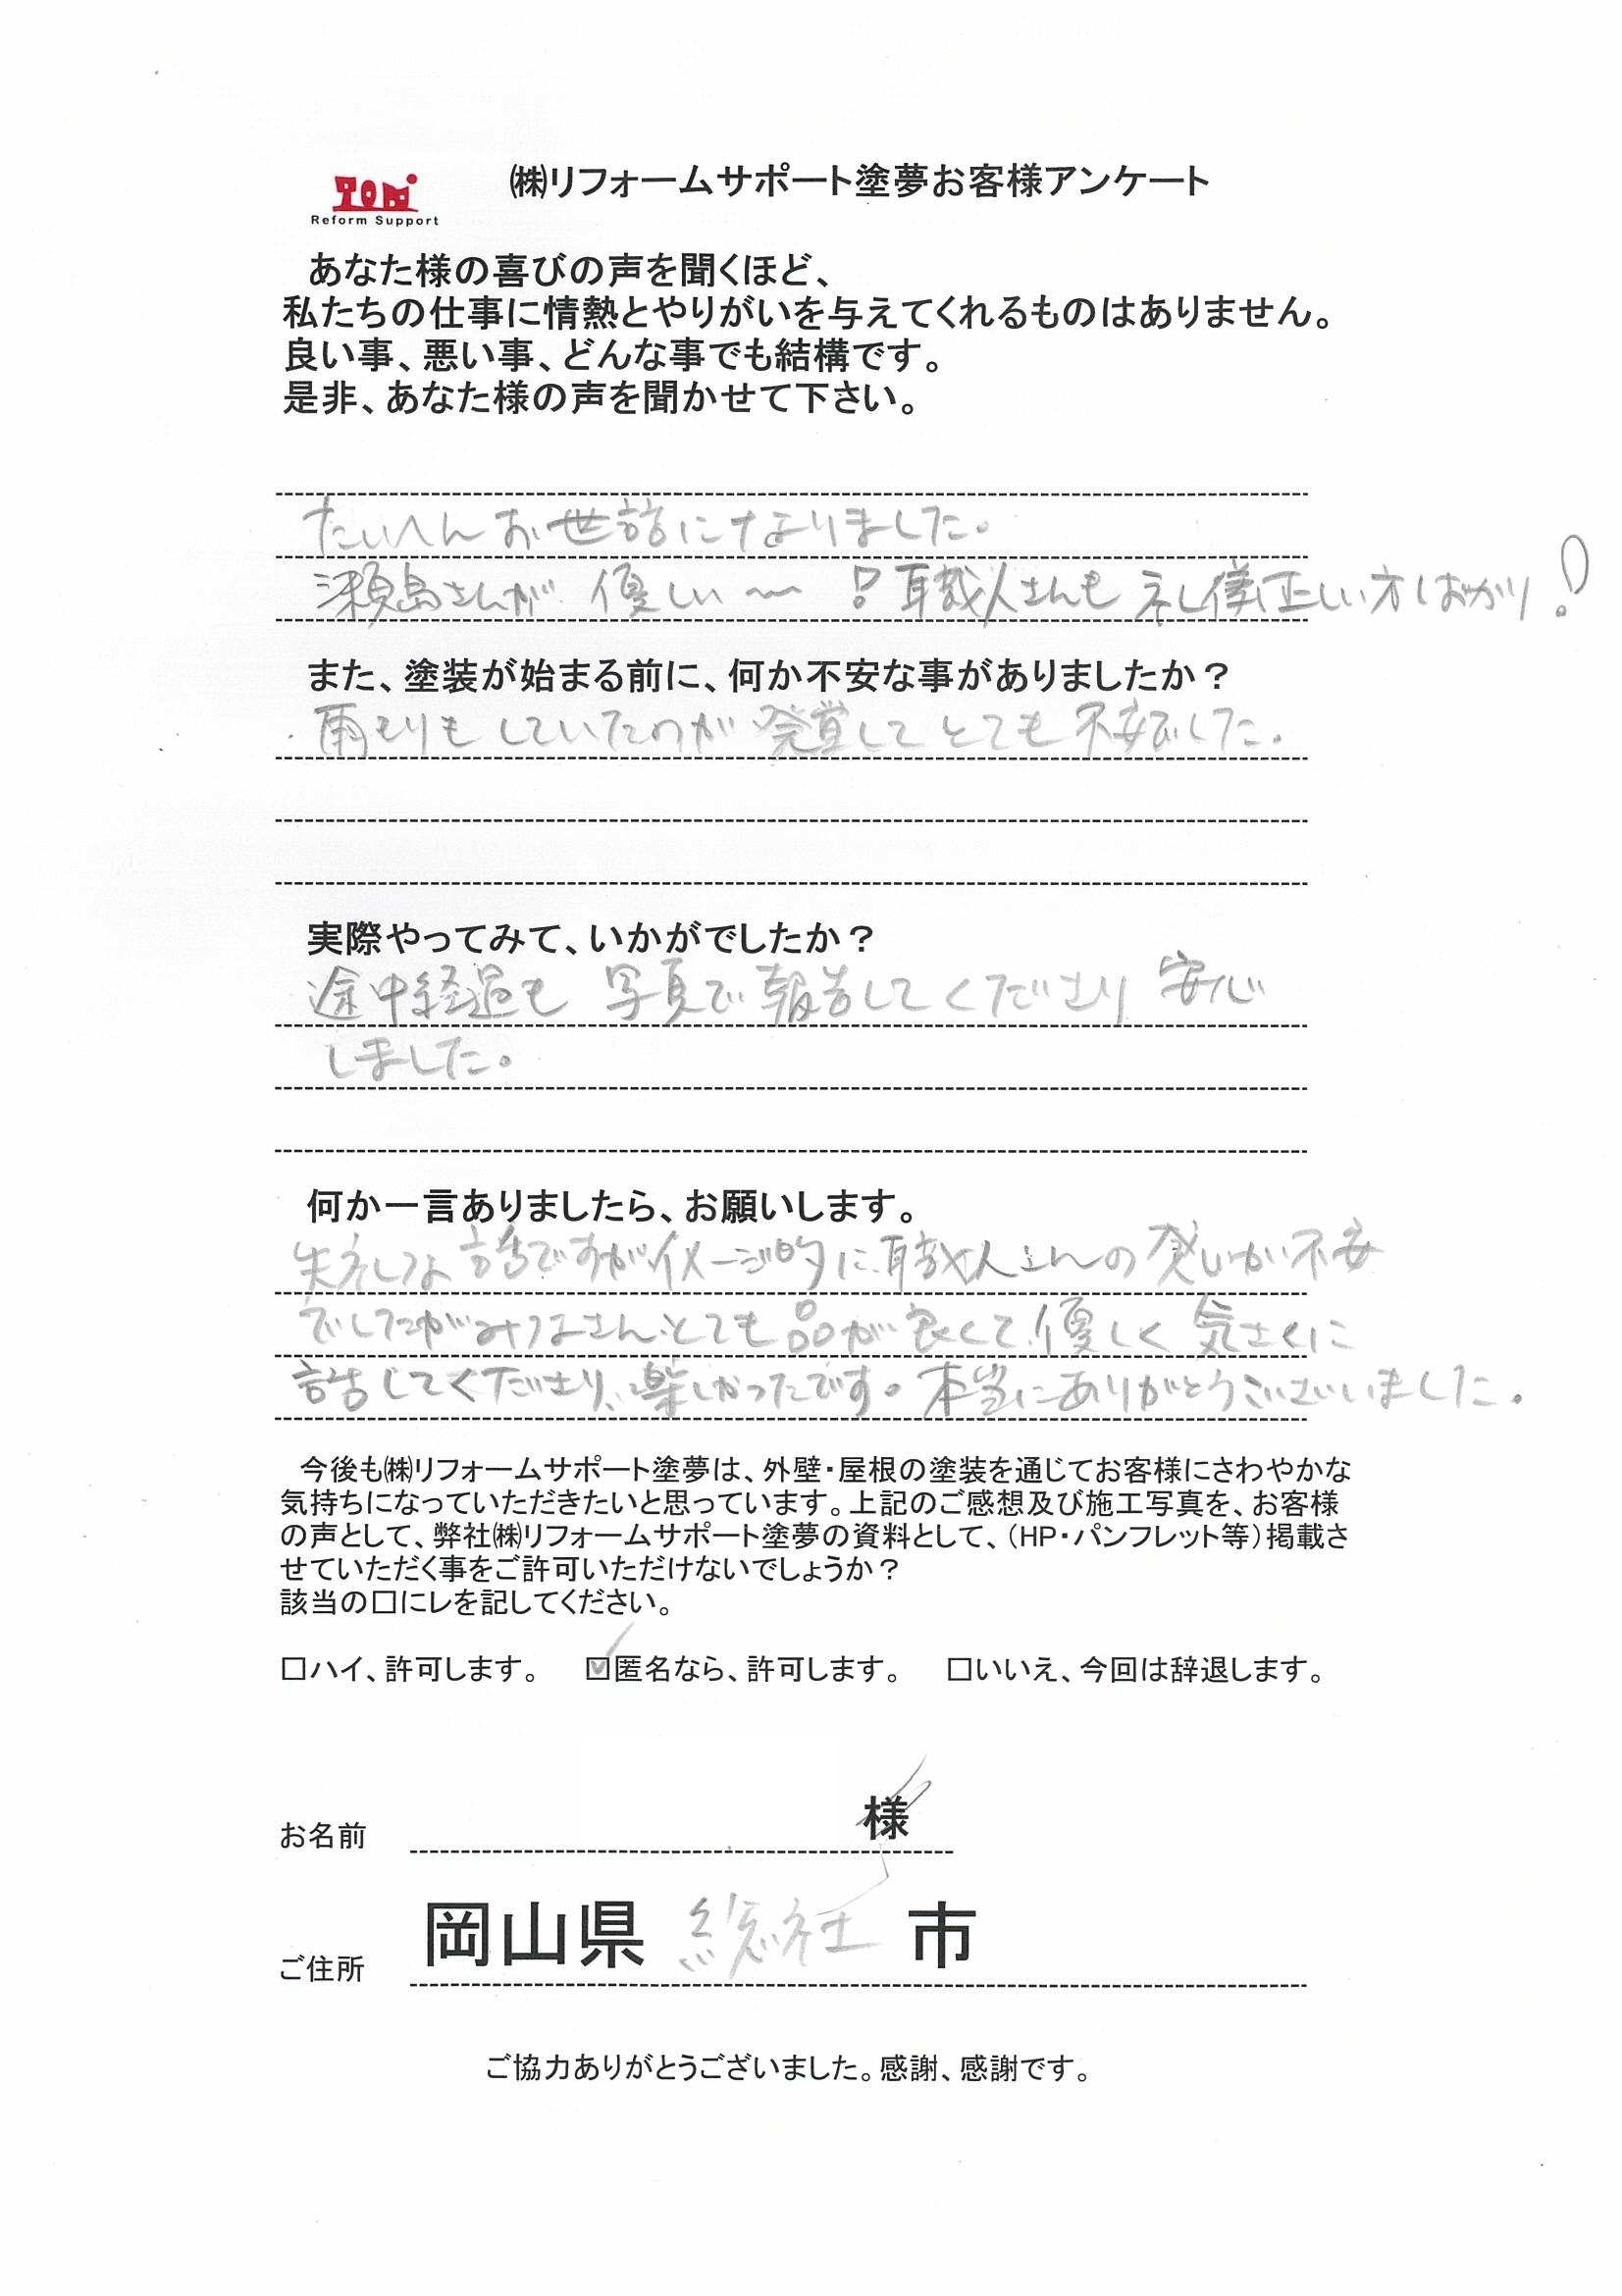 ㈱リフォームサポート塗夢お客様アンケート
TOM
Reform Support
あなた様の喜びの声を聞くほど、
私たちの仕事に情熱とやりがいを与えてくれるものはありません。
良い事、悪い事、どんな事でも結構です。
是非、あなた様の声を聞かせて下さい。
たいへんお世話になりました。
瀬島さんが優しい〜！職人さんも礼儀正しい方ばかり！
また、塗装が始まる前に、何か不安な事がありましたか？
雨もりもしていたのが発覚してとても不安でした。
実際やってみて、いかがでしたか？
途中経過も写真で報告してくださり安心
しました。
何か一言ありましたら、お願いします。
失礼な話ですがイメージ的に職人さんの感じが不安
でしたがみなさんとても品が良くて優しく気さくに
話してくださり、楽しかったです。本当にありがとうございました。
今後も㈱リフォームサポート塗夢は、外壁・屋根の塗装を通じてお客様にさわやかな
気持ちになっていただきたいと思っています。上記のご感想及び施工写真を、お客様
の声として、弊社㈱リフォームサポート塗夢の資料として、（HP・パンフレット等）掲載さ
せていただく事をご許可いただけないでしょうか？
該当の□にレを記してください。
□ハイ、許可します。 ☑匿名なら、許可します。 □いいえ、今回は辞退します。
お名前 様
ご住所 岡山県 総社 市
ご協力ありがとうございました。感謝、感謝です。